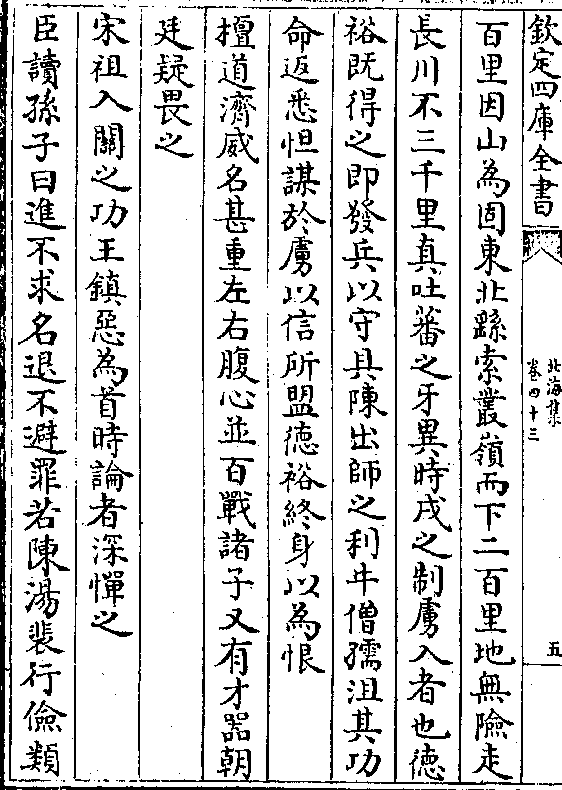 欽定四庫全書
北海集
卷四十三
五
百里因山為固東北繇索叢嶺而下二百里地無險走
長川不三千里真吐蕃之牙異時戍之制虜入者也德
裕既得之即發兵以守具陳出師之利牛僧孺沮其功
命返悉怛謀於虜以信所盟德裕終身以為恨
檀道濟威名甚重左右腹心並百戰諸子又有才器朝
廷疑畏之
宋祖入關之功王鎮惡為首時論者深憚之
臣讀孫子曰進不求名退不避罪若陳湯裴行儉類